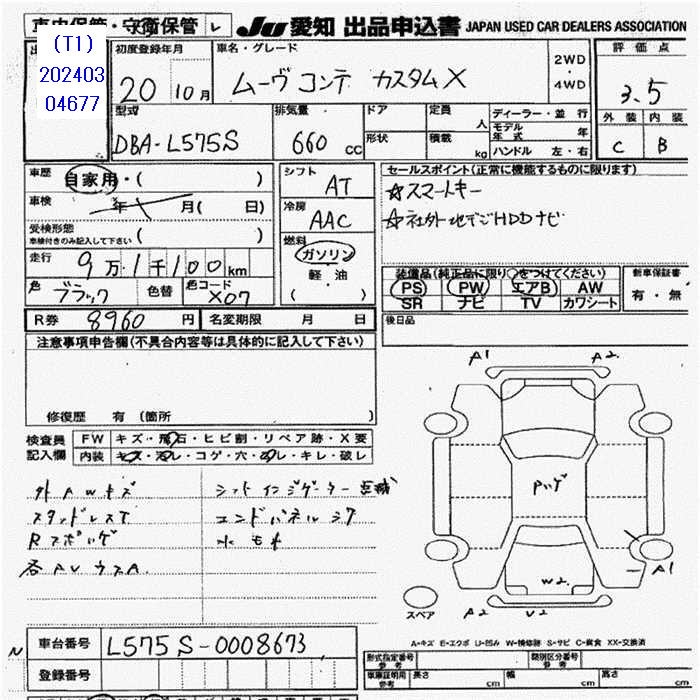 車内保管・守衛保管 レ
JU 愛知 出品申込書 JAPAN USED CAR DEALERS ASSOCIATION
(T1)
202403
04677
初度登録年月
20 10月
車名・グレード
ムーヴ コンテ カスタムX
2WD
・
4WD
評価点
3.5
外装 内装
C B
型式
DBA-L575S
排気量
660 CC
ドア
形状
定員 人
積載 kg
ディーラー・並行
モデル年式 年
ハンドル 左・右
車歴 自家用・( )
車検 年 月( 日)
受検形態
車検付きのみ記入して下さい ( )
走行 9万1千100km
色 ブラック 色替 色コード X07
シフト AT
冷房 AAC
燃料
ガソリン
軽・油
( )
セールスポイント(正常に機能するものに限ります)
☆スマートキー
☆社外地デジHDDナビ
装備品(純正品に限り○をつけてください)
PS PW エアB AW
SR ナビ TV カワシート
新車保証書
有・無
R券 8960 円 名変期限 月 日
後日品
注意事項申告欄(不具合内容等は具体的に記入して下さい)
修復歴 有 (箇所 )
検査員
記入欄
FW キズ・飛石・ヒビ割・リペア跡・X要
内装 キズ・汚レ・コゲ・穴・スレ・キレ・破レ
外AWキズ
スタッドレスT
シフトインジゲーター点滅
エンドパネルシワ
水モレ
A1 A2
Pいゲ
W2
A1
A2 U2
スペア
A-キズ E-エクボ U-凹み W-補修跡 S-サビ C-腐食 XX-交換済
車台番号 L575S-0008673
登録番号
型式指定番号
参考
類別区分番号
参考
車庫証明用
参考
長さ cm 幅 cm 高さ cm